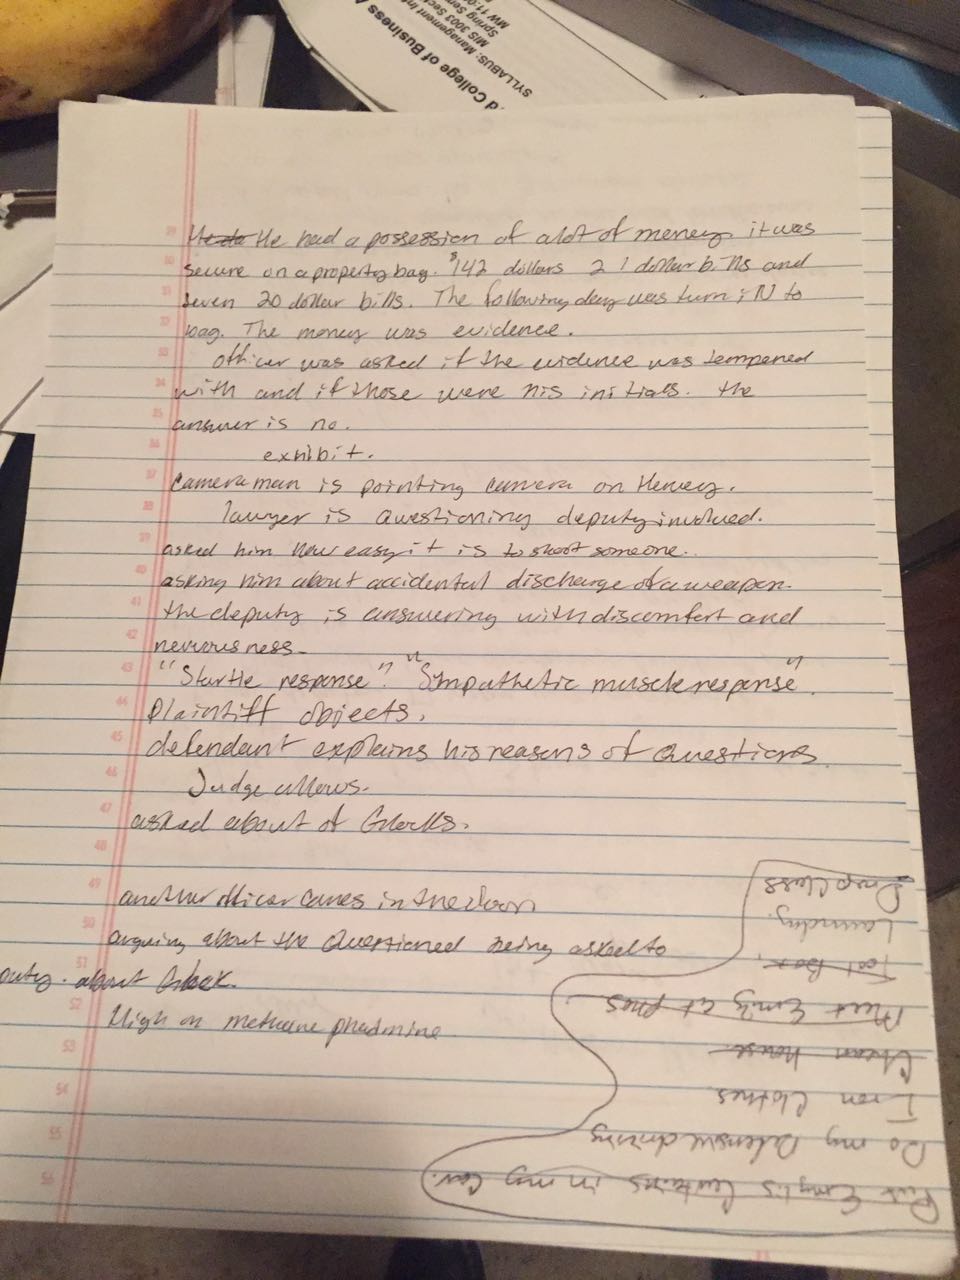 He had a possession of a lot of money. it was
secure on a property bag. $142 dollars 2 1 dollar bills and
seven 20 dollar bills. The following day was turn iN to
bag. The money was evidence.
officer was asked if the evidence was tempened
with and if those were his initials. the
answer is no.
exhibit.
Camera man is pointing camera on Hervey.
lawyer is Questioning deputy involved.
asked him how easy it is to shoot someone.
asking him about accidental discharge of a weapon.
the deputy is answering with discomfort and
nervousness.
"Startle response". "Sympathetic muscle response".
Plaintiff objects.
defendant explains his reasons of Questions.
Judge allows.
asked about of Glocks.
another officer comes in the door
arguing about the Questioned being asked to
puty. about Glock.
High on methane phadmine
Put Emyli's Curtains in my Car.
Do my Defensive driving
Iron Clothes
Clean house
Meet Emily at
Tool Box.
Laundry.
Drop Class
d College of Business A
SYLLABUS: Management In
MIS 3003 Sect
Spring Sem
MW 11:0
39
40
41
42
43
44
45
46
47
48
49
50
51
52
53
54
55
56